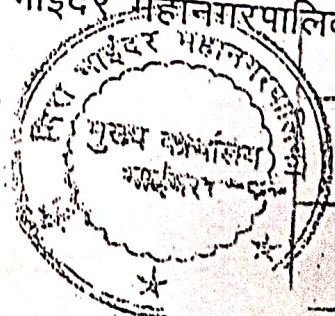 भाईंदर महानगरपालि
मिरा भाईंदर महानगरपालिका
मुख्य कार्यालय